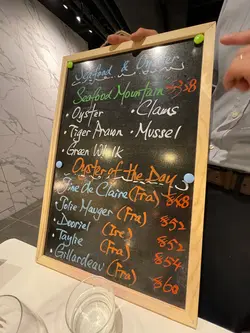 Seafood & Oyster
Seafood Mountain $238
• Oyster • Clams
• Tiger Prawn • Mussel
• Green Whelk
Oyster of the Day
Fine De Claire (Fra) $48
Jolie Mauger (Fra) $52
Dooriel (Ire) $52
Taylie (Fra) $54
Gillardeau (Fra) $60